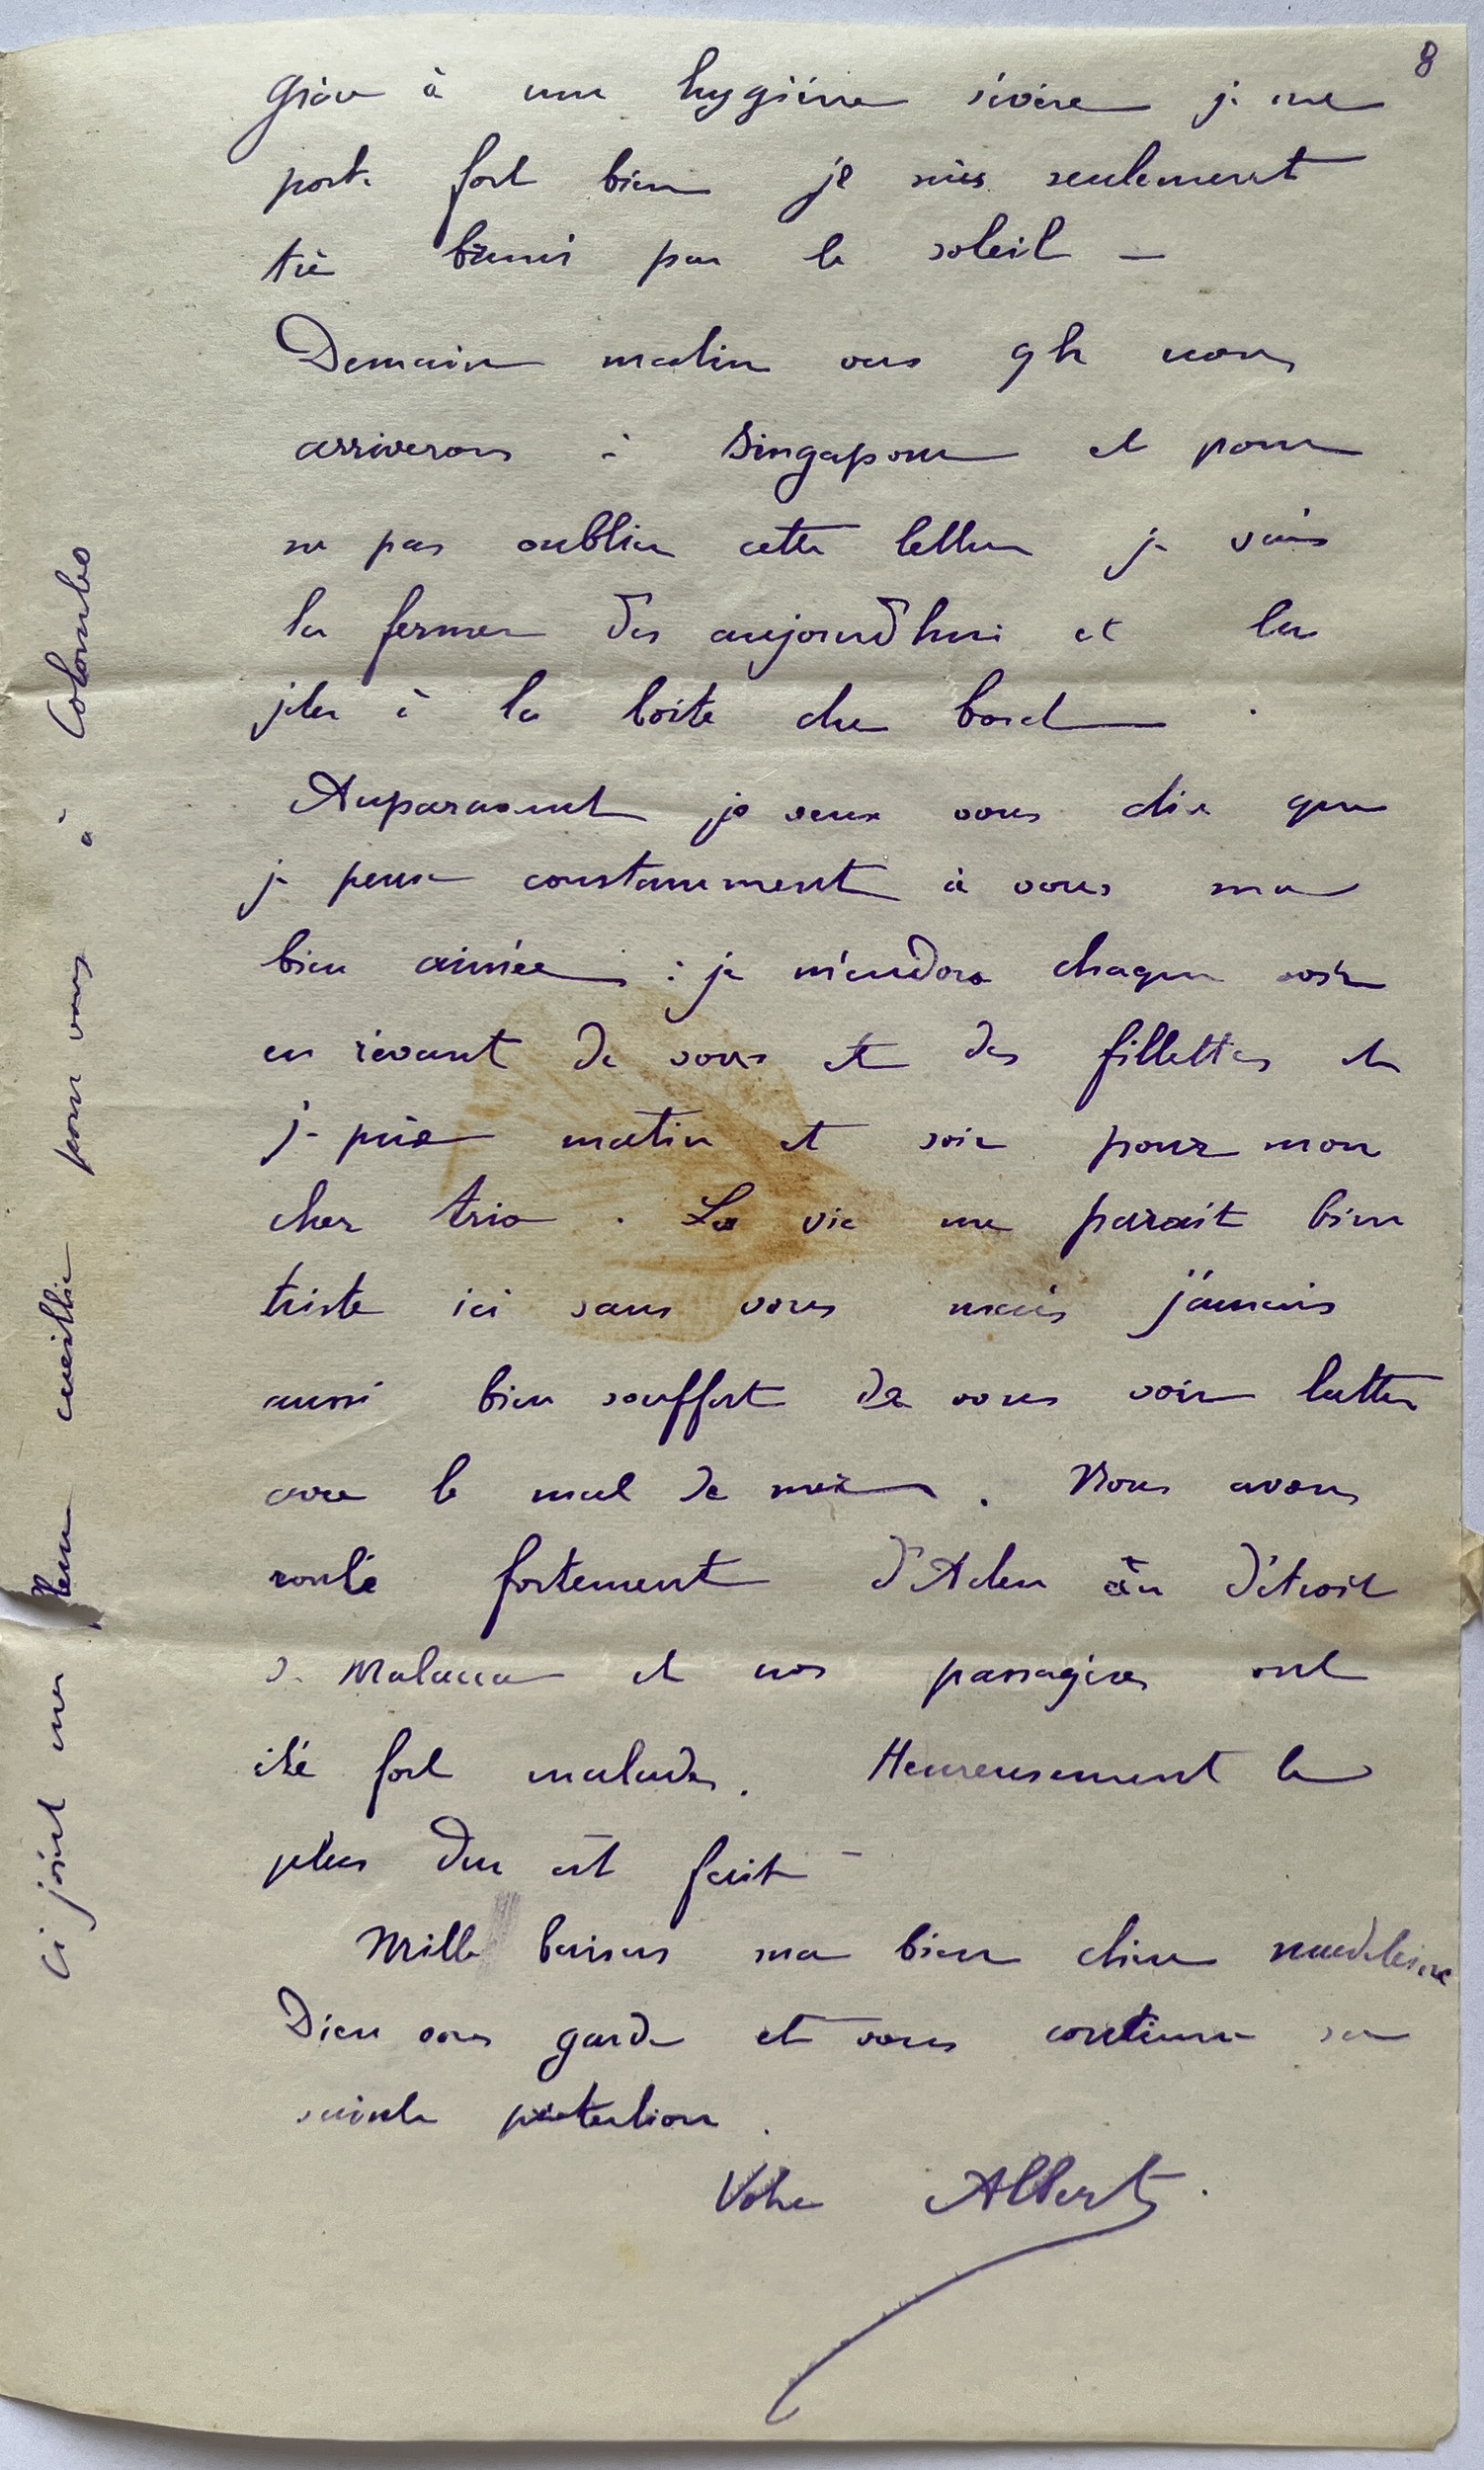 8
Grâce à une hygiène sévère je me
porte fort bien je suis seulement
très bruni par le soleil —
Demain matin vers 9h nous
arriverons à Singapour et pour
ne pas oublier cette lettre je vais
la fermer dès aujourd'hui et la
jeter à la boite du bord .
Auparavant je veux vous dire que
je pense constamment à vous ma
bien aimée : je m'endors chaque soir
en rêvant de vous et des fillettes et
je prie matin et soir pour mon
cher trio . La vie me parait bien
triste ici sans vous mais j'aurais
aussi bien souffert de vous voir lutter
avec le mal de mer . Nous avons
roulé fortement d'Aden au détroit
de Malacca et nos passagères ont
été fort malades . Heureusement le
plus dur est fait —
Mille baisers ma bien chère Madeleine
Dieu vous garde et vous continue sa
sainte protection .
Votre Albert .
Ci joint une fleur cueillie pour vous à Colombo